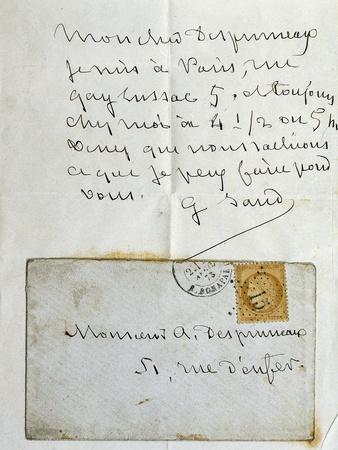 Mon cher Despruneaux
je suis à Paris, rue
gay lussac 5. et toujours
chez moi à 4 1/2 ou 5 h.
Venez que nous
ce que je peux faire pour
vous. G Sand
73
R. BONAPAR
15
Monsieur A. Despruneaux
51, rue d'enfer.